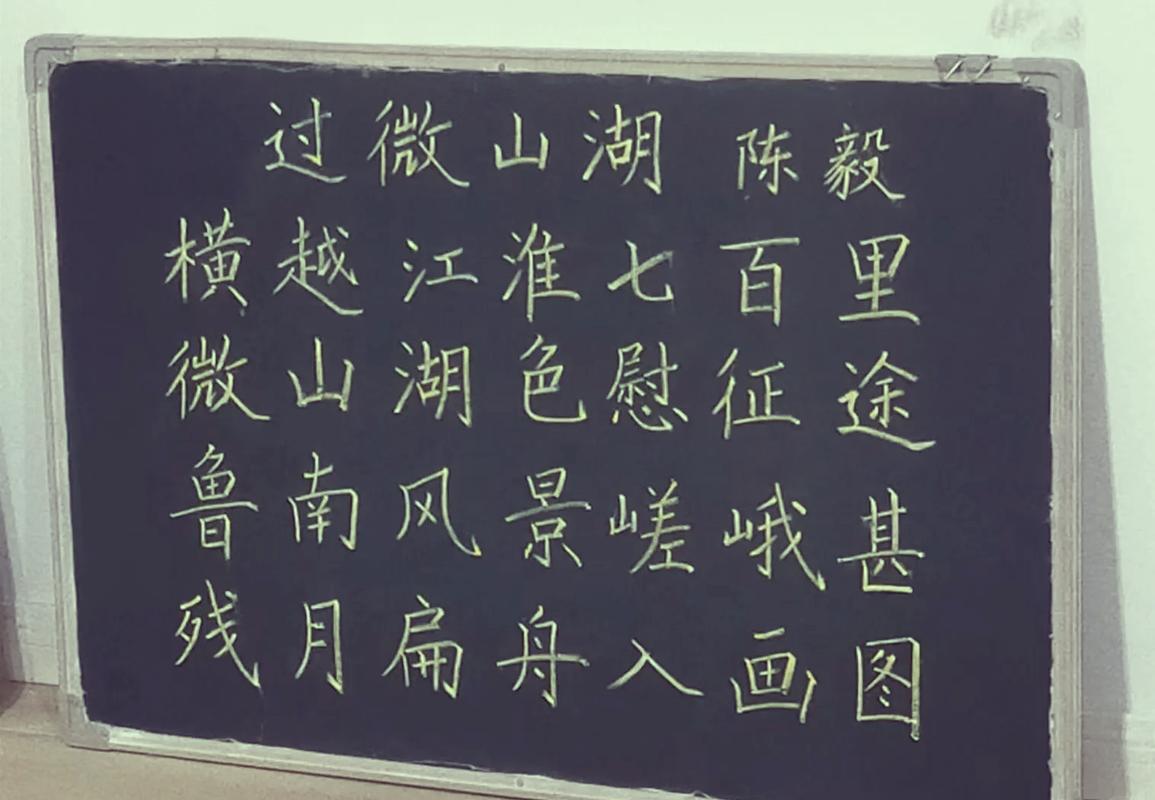 过微山湖 陈毅
横越江淮七百里
微山湖色慰征途
鲁南风景嵯峨甚
残月扁舟入画图